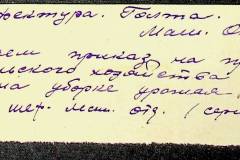 фектура. Голта.
Маш. О
ем приказ на пр
льского хозяйства
на уборке урожая
шер. маш. отд. / сери